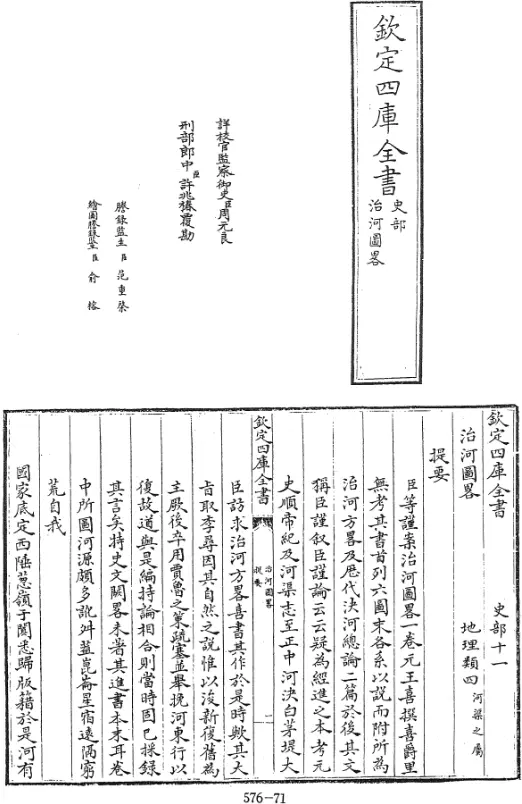 欽定四庫全書 史部
治河圖畧
詳校官監察御史臣周元良
刑部郎中臣許兆椿覆勘
謄錄監生臣范重棨
繪圖謄錄監生臣俞榕
欽定四庫全書 史部十一
治河圖畧 地理類四河渠之屬
提要
臣等謹案治河圖畧一卷元王喜撰喜爵里
無考其書首列六圖末各系以說而附所為
治河方畧及歷代決河總論二篇於後其文
稱臣謹叙臣謹論云云疑為經進之本考元
史順帝紀及河渠志至正中河決白茅堤大
欽定四庫全書 治河圖畧 提要 一
臣訪求治河方畧喜書其作於是時歟其大
旨取李尋因其自然之說惟以浚新復舊為
主厥後卒用賈魯之策疏塞並舉挽河東行以
復故道與是編持論相合則當時固已採錄
其言矣特史文闕畧未著其進書本末耳卷
中所圖河源頗多訛舛蓋崑崙星宿遠隔窮
荒自我
國家底定西陲蔥嶺于闐悉歸版籍於是河有
576-71